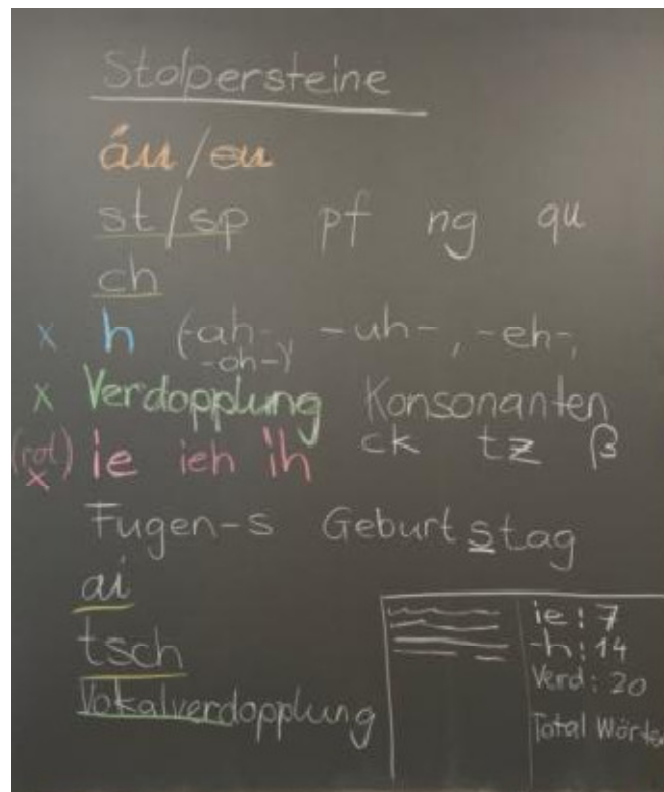 Stolpersteine
äu/eu
st/sp pf ng qu
ch
x h (-ah-, -uh-, -eh-,
-oh-)
x Verdopplung Konsonanten
ck tz ß
(rot) ie ieh ih
x
Fugen-s Geburtstag
ai
tsch
Vokalverdopplung
ie: 7
-h: 14
Verd: 20
Total Wörter